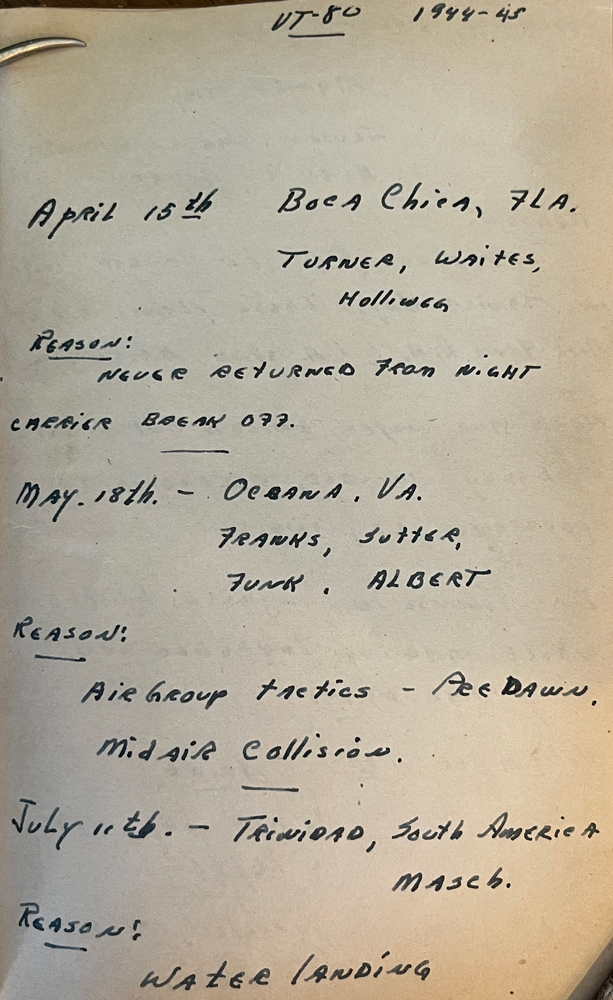 VT-80 1944-45
April 15th Boca Chica, FLA.
TURNER, WAITES,
Holliweg
REASON:
NEVER RETURNED FROM NIGHT
CARRIER BREAK OFF.
MAY. 18th. - OCEANA, VA.
FRANKS, SUTTER,
FUNK, ALBERT
REASON:
AIR Group tactics - PRE DAWN.
Mid AIR Collision.
July 11th. - TRINIDAD, South AMERICA
MASCH.
REASON:
WATER LANDING